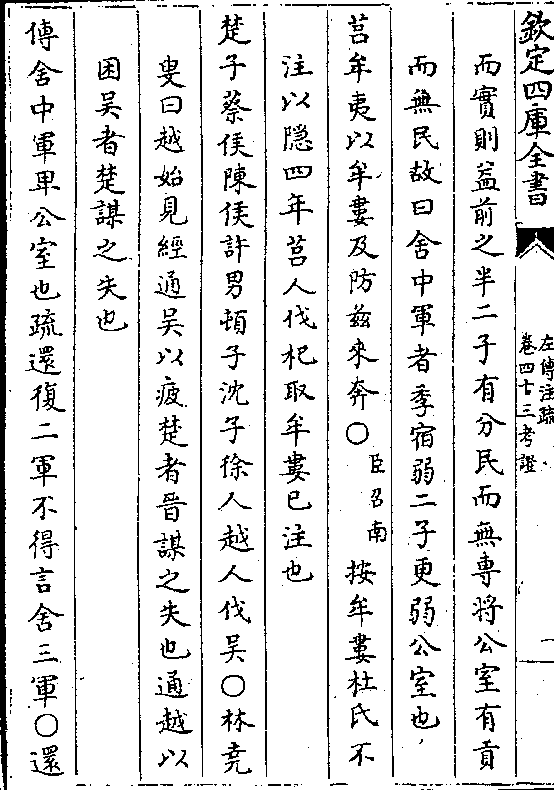 欽定四庫全書
左傳注疏
卷四十三考證
而實則益前之半二子有分民而無專將公室有貢
而無民故曰舍中軍者季宿弱二子更弱公室也
莒牟夷以牟婁及防茲來奔○臣召南按牟婁杜氏不
注以隱四年莒人伐杞取牟婁已注也
楚子蔡侯陳侯許男頓子沈子徐人越人伐吳○林堯
叟曰越始見經通吳以疲楚者晉謀之失也通越以
困吳者楚謀之失也
傳舍中軍卑公室也疏還復二軍不得言舍三軍○還